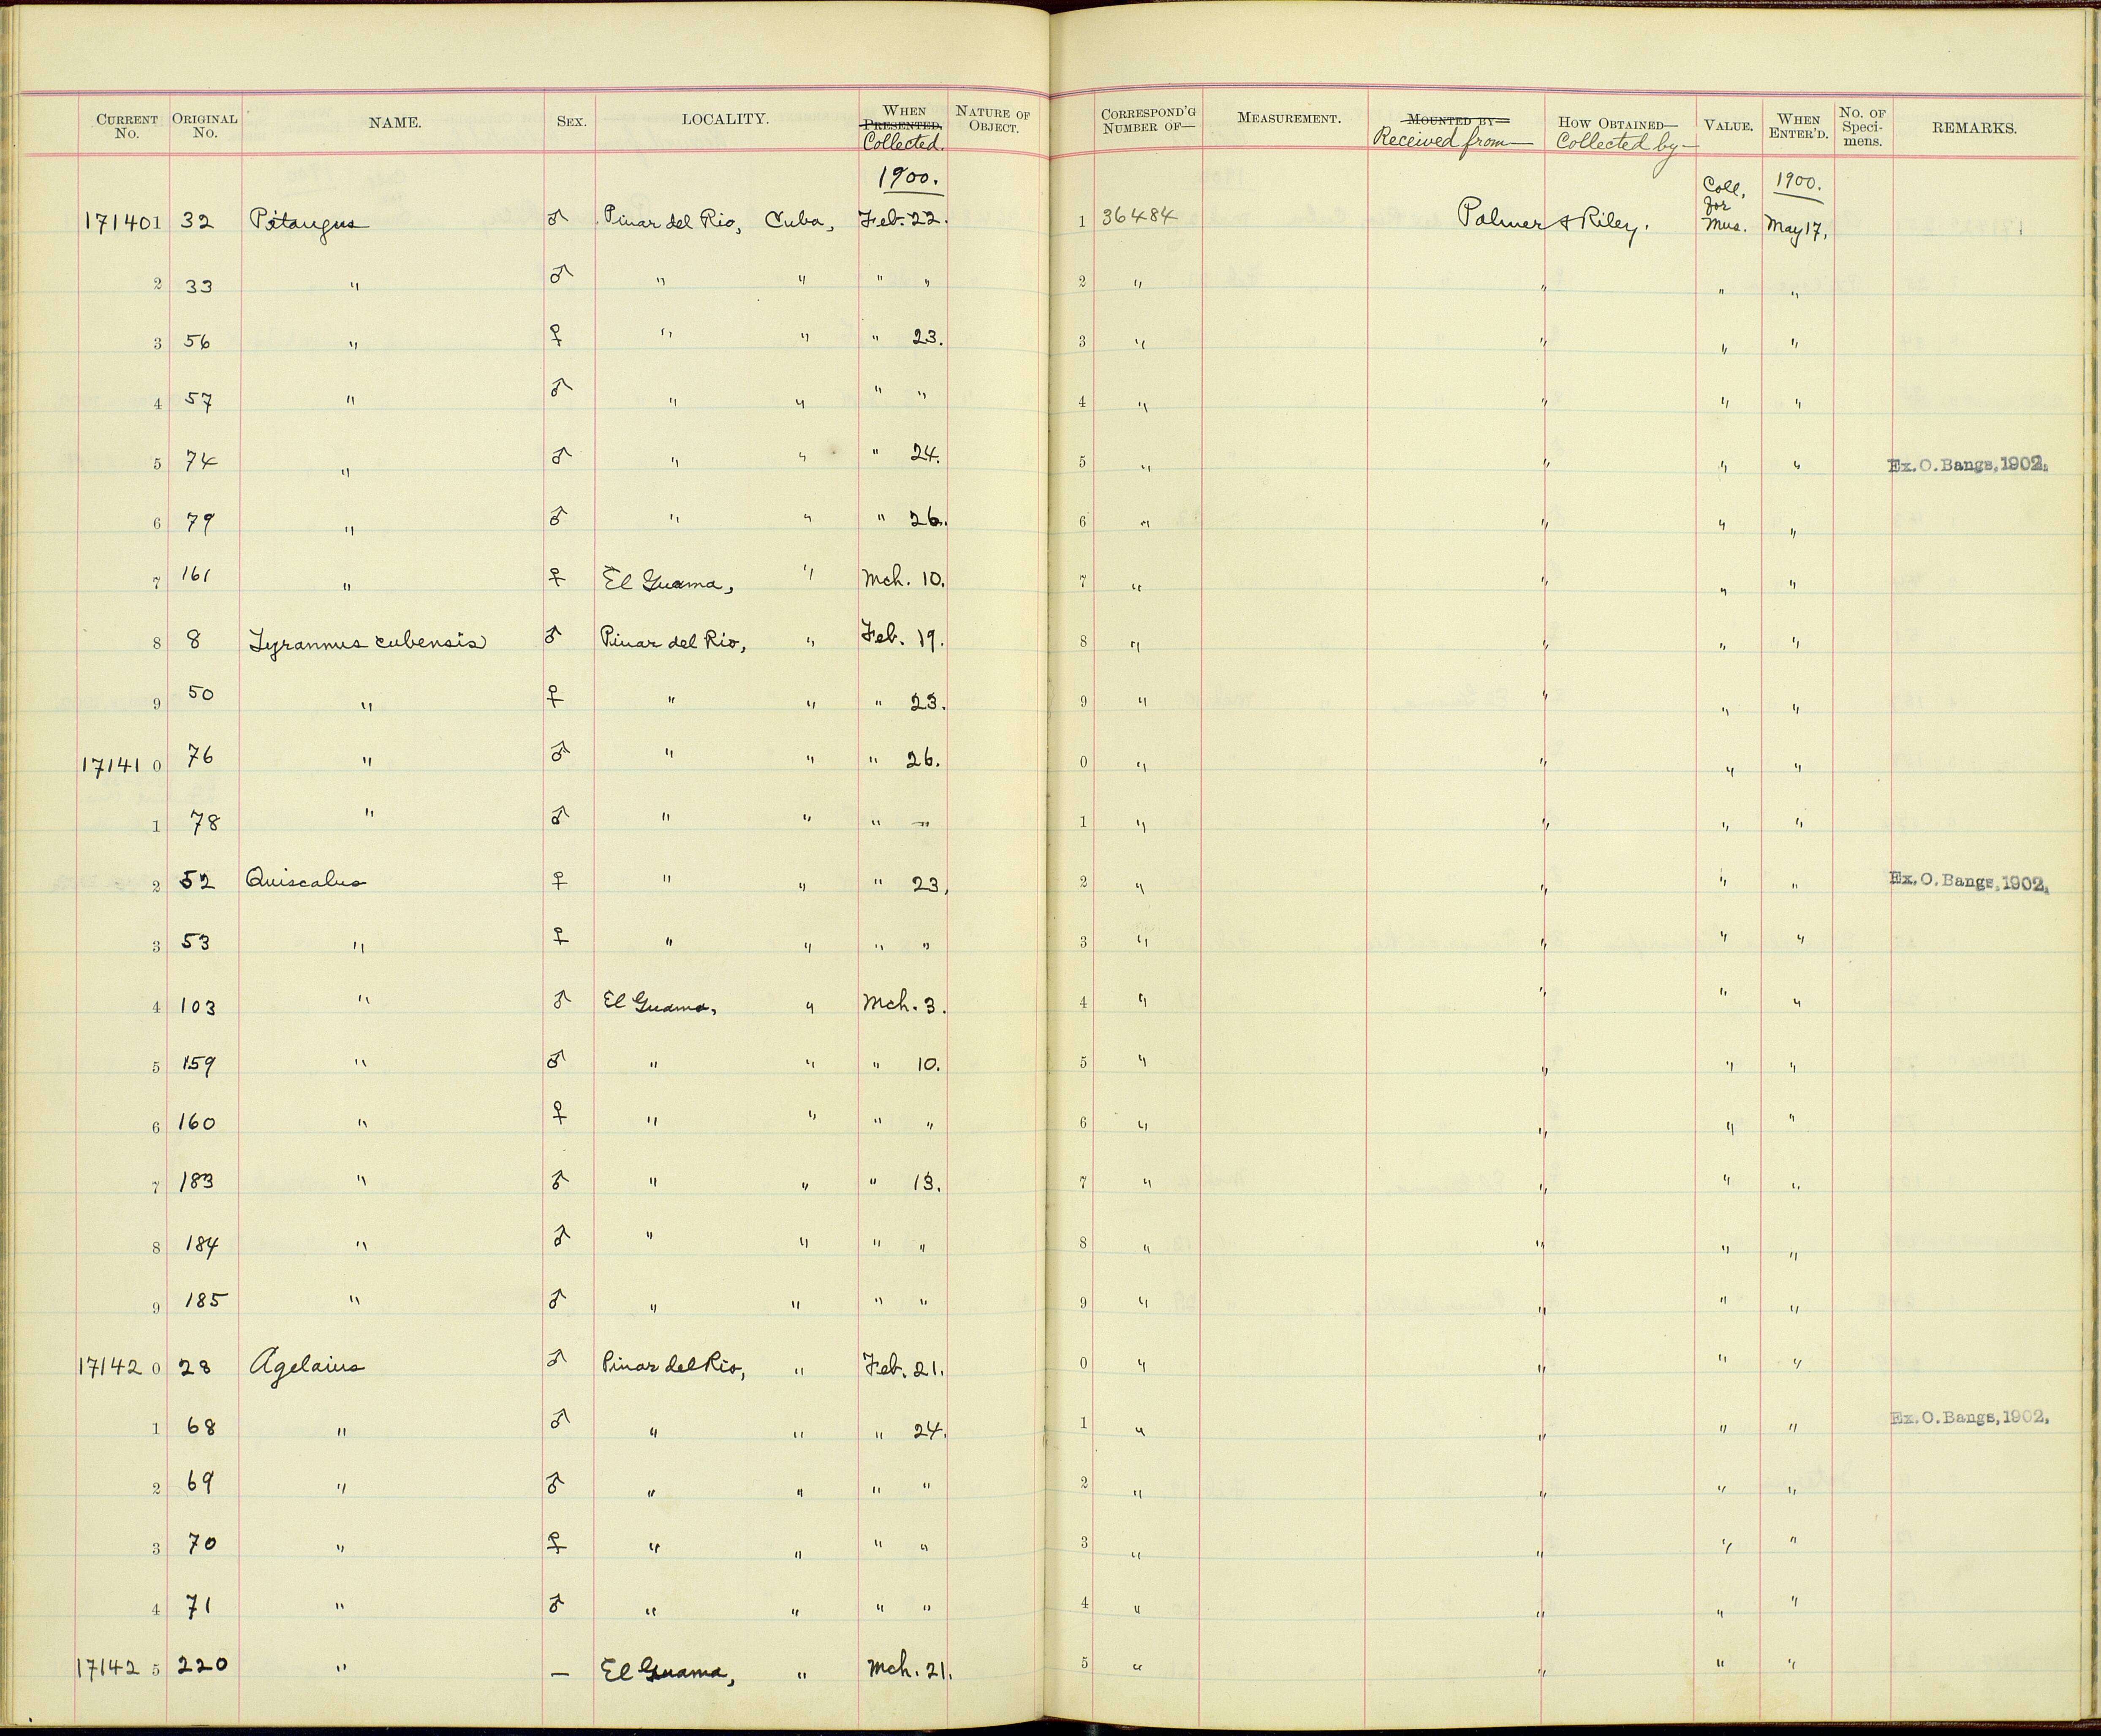 CURRENT No. ORIGINAL No. NAME. SEX. LOCALITY. WHEN PRESENTED, Collected. NATURE OF OBJECT. CORRESPOND'G NUMBER OF— MEASUREMENT. MOUNTED BY— Received from— HOW OBTAINED— Collected by— VALUE. WHEN ENTER'D. No. OF Speci-mens. REMARKS.
1900. Coll. for 1900.
171401 32 Pitangus ♂ Pinar del Rio, Cuba, Feb. 22. 1 36484 Palmer & Riley. Mus. May 17,
2 33 " ♂ " " " " 2 " " " "
3 56 " ♀ " " " 23. 3 " " " "
4 57 " ♂ " " " " 4 " " " "
5 74 " ♂ " " " 24. 5 " " " " Ex. O. Bangs, 1902.
6 79 " ♂ " " " 26. 6 " " " "
7 161 " ♀ El Guama, " Mch. 10. 7 " " " "
8 8 Tyrannus cubensis ♂ Pinar del Rio, " Feb. 19. 8 " " " "
9 50 " ♀ " " " 23. 9 " " " "
17141 0 76 " ♂ " " " 26. 0 " " " "
1 78 " ♂ " " " " 1 " " " "
2 52 Quiscalus ♀ " " " 23, 2 " " " " Ex. O. Bangs, 1902,
3 53 " ♀ " " " " 3 " " " "
4 103 " ♂ El Guama, " Mch. 3. 4 " " " "
5 159 " ♂ " " " 10. 5 " " " "
6 160 " ♀ " " " " 6 " " " "
7 183 " ♂ " " " 13. 7 " " " "
8 184 " ♂ " " " " 8 " " " "
9 185 " ♂ " " " " 9 " " " "
17142 0 28 Agelaius ♂ Pinar del Rio, " Feb. 21. 0 " " " "
1 68 " ♂ " " " 24. 1 " " " " Ex. O. Bangs, 1902,
2 69 " ♂ " " " " 2 " " " "
3 70 " ♀ " " " " 3 " " " "
4 71 " ♂ " " " " 4 " " " "
17142 5 220 " — El Guama, " Mch. 21. 5 " " " "